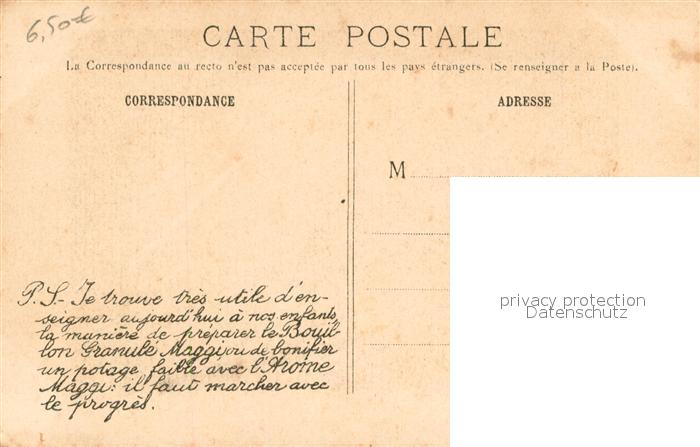 6,50€
CARTE POSTALE
La Correspondance au recto n'est pas acceptée par tous les pays étrangers. (Se renseigner a la Poste).
CORRESPONDANCE
ADRESSE
M
privacy protection
Datenschutz
P.S.- Je trouve très utile d'en-
seigner aujourd'hui à nos enfants,
la manière de préparer le Bouil-
lon Granulé Maggi, ou de bonifier
un potage faible avec l'Arome
Maggi: il faut marcher avec
le progrès.